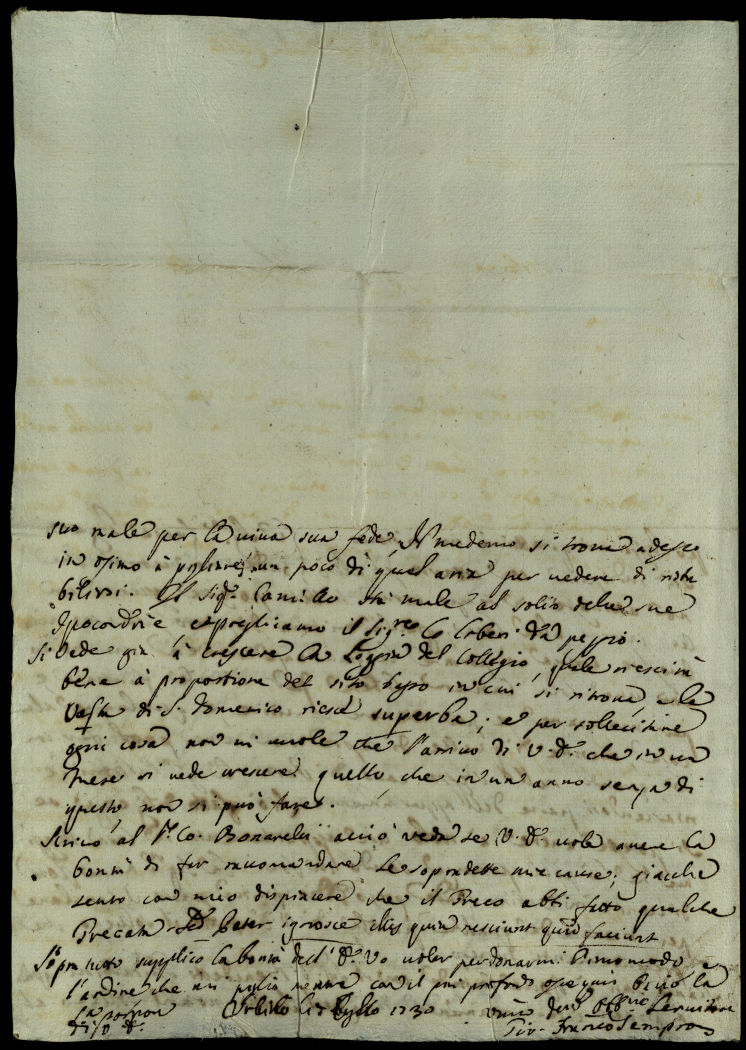 suo male per la viva sua fede, Il medemo si trova adesso
in Osimo à pigliare un poco di quel aria per vedere di rista
bilirsi. Il Sigr. Camillo stà male al solito delle sue
Ipocondrie e preghiamo il Sigre lo liberi da peggio.
Si vede già à crescere la Loggia del Collegio, quale riescirà
bene à proportione del sito basso in cui si ritrova, e la
di S. Domenico riesce superba; e per sollecitare
ogni cosa non vi vuole che l'arrivo di V. E. che in un
mese si vede crescere quello, che in un anno senza di
questo, non si può fare.
Scrivo al Sr. Co. Bonarelli acciò veda se V. E. vole avere la
bontà di far racomandare le sopradette mie cause, giacche
sento con mio dispiacere che il Preco abbi fatto qualche
Pater ignosce illis quia nesciunt quid faciunt
Sopra tutto supplico la bontà dell' E. Va voler perdonarmi l'incomodo
l'ardire che mi piglio mentre con il più profondo ossequio bacio la
Sa porpora Urbino li Luglio 1730 Servitore
di V. E. Franco Sempron